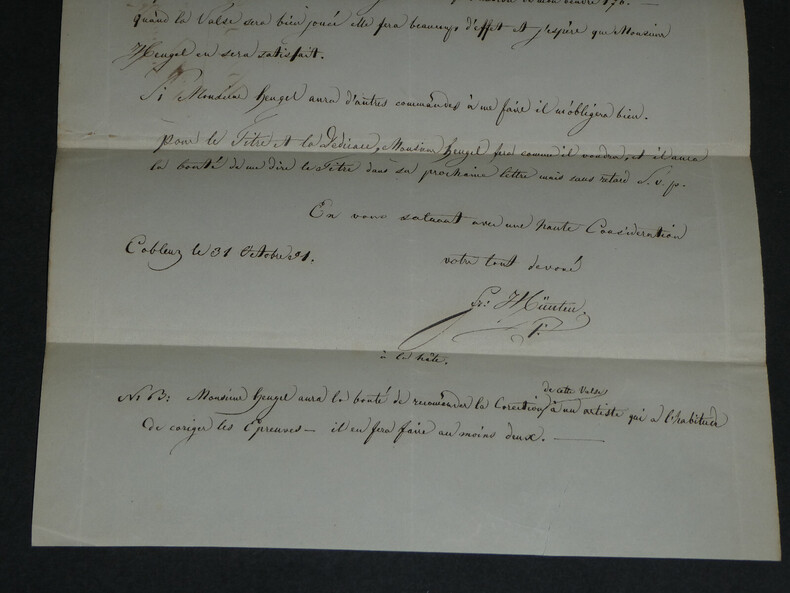 mon oeuvre 176. —
Quand la Valse sera bien jouée elle fera beaucoup d'effet et j'espère que Monsieur
Heugel en sera satisfait.
Si Monsieur Heugel aura d'autres commandes à me faire il m'obligera bien.
pour le Titre et la Dédicace, Monsieur Heugel fera comme il voudra, et il aura
la bonté de me dire le Titre dans sa prochaine lettre mais sans retard S. v. p.
En vous saluant avec une haute Considération
Coblenz le 31 Octobre 51.
votre tout devoué
Fr: Hünten
P.
à la hâte.
de cette Valse
N: B: Monsieur Heugel aura la bonté de recomander la Corection à un artiste qui a l'habitude
de coriger les Epreuves — il en fera faire au moins deux. —